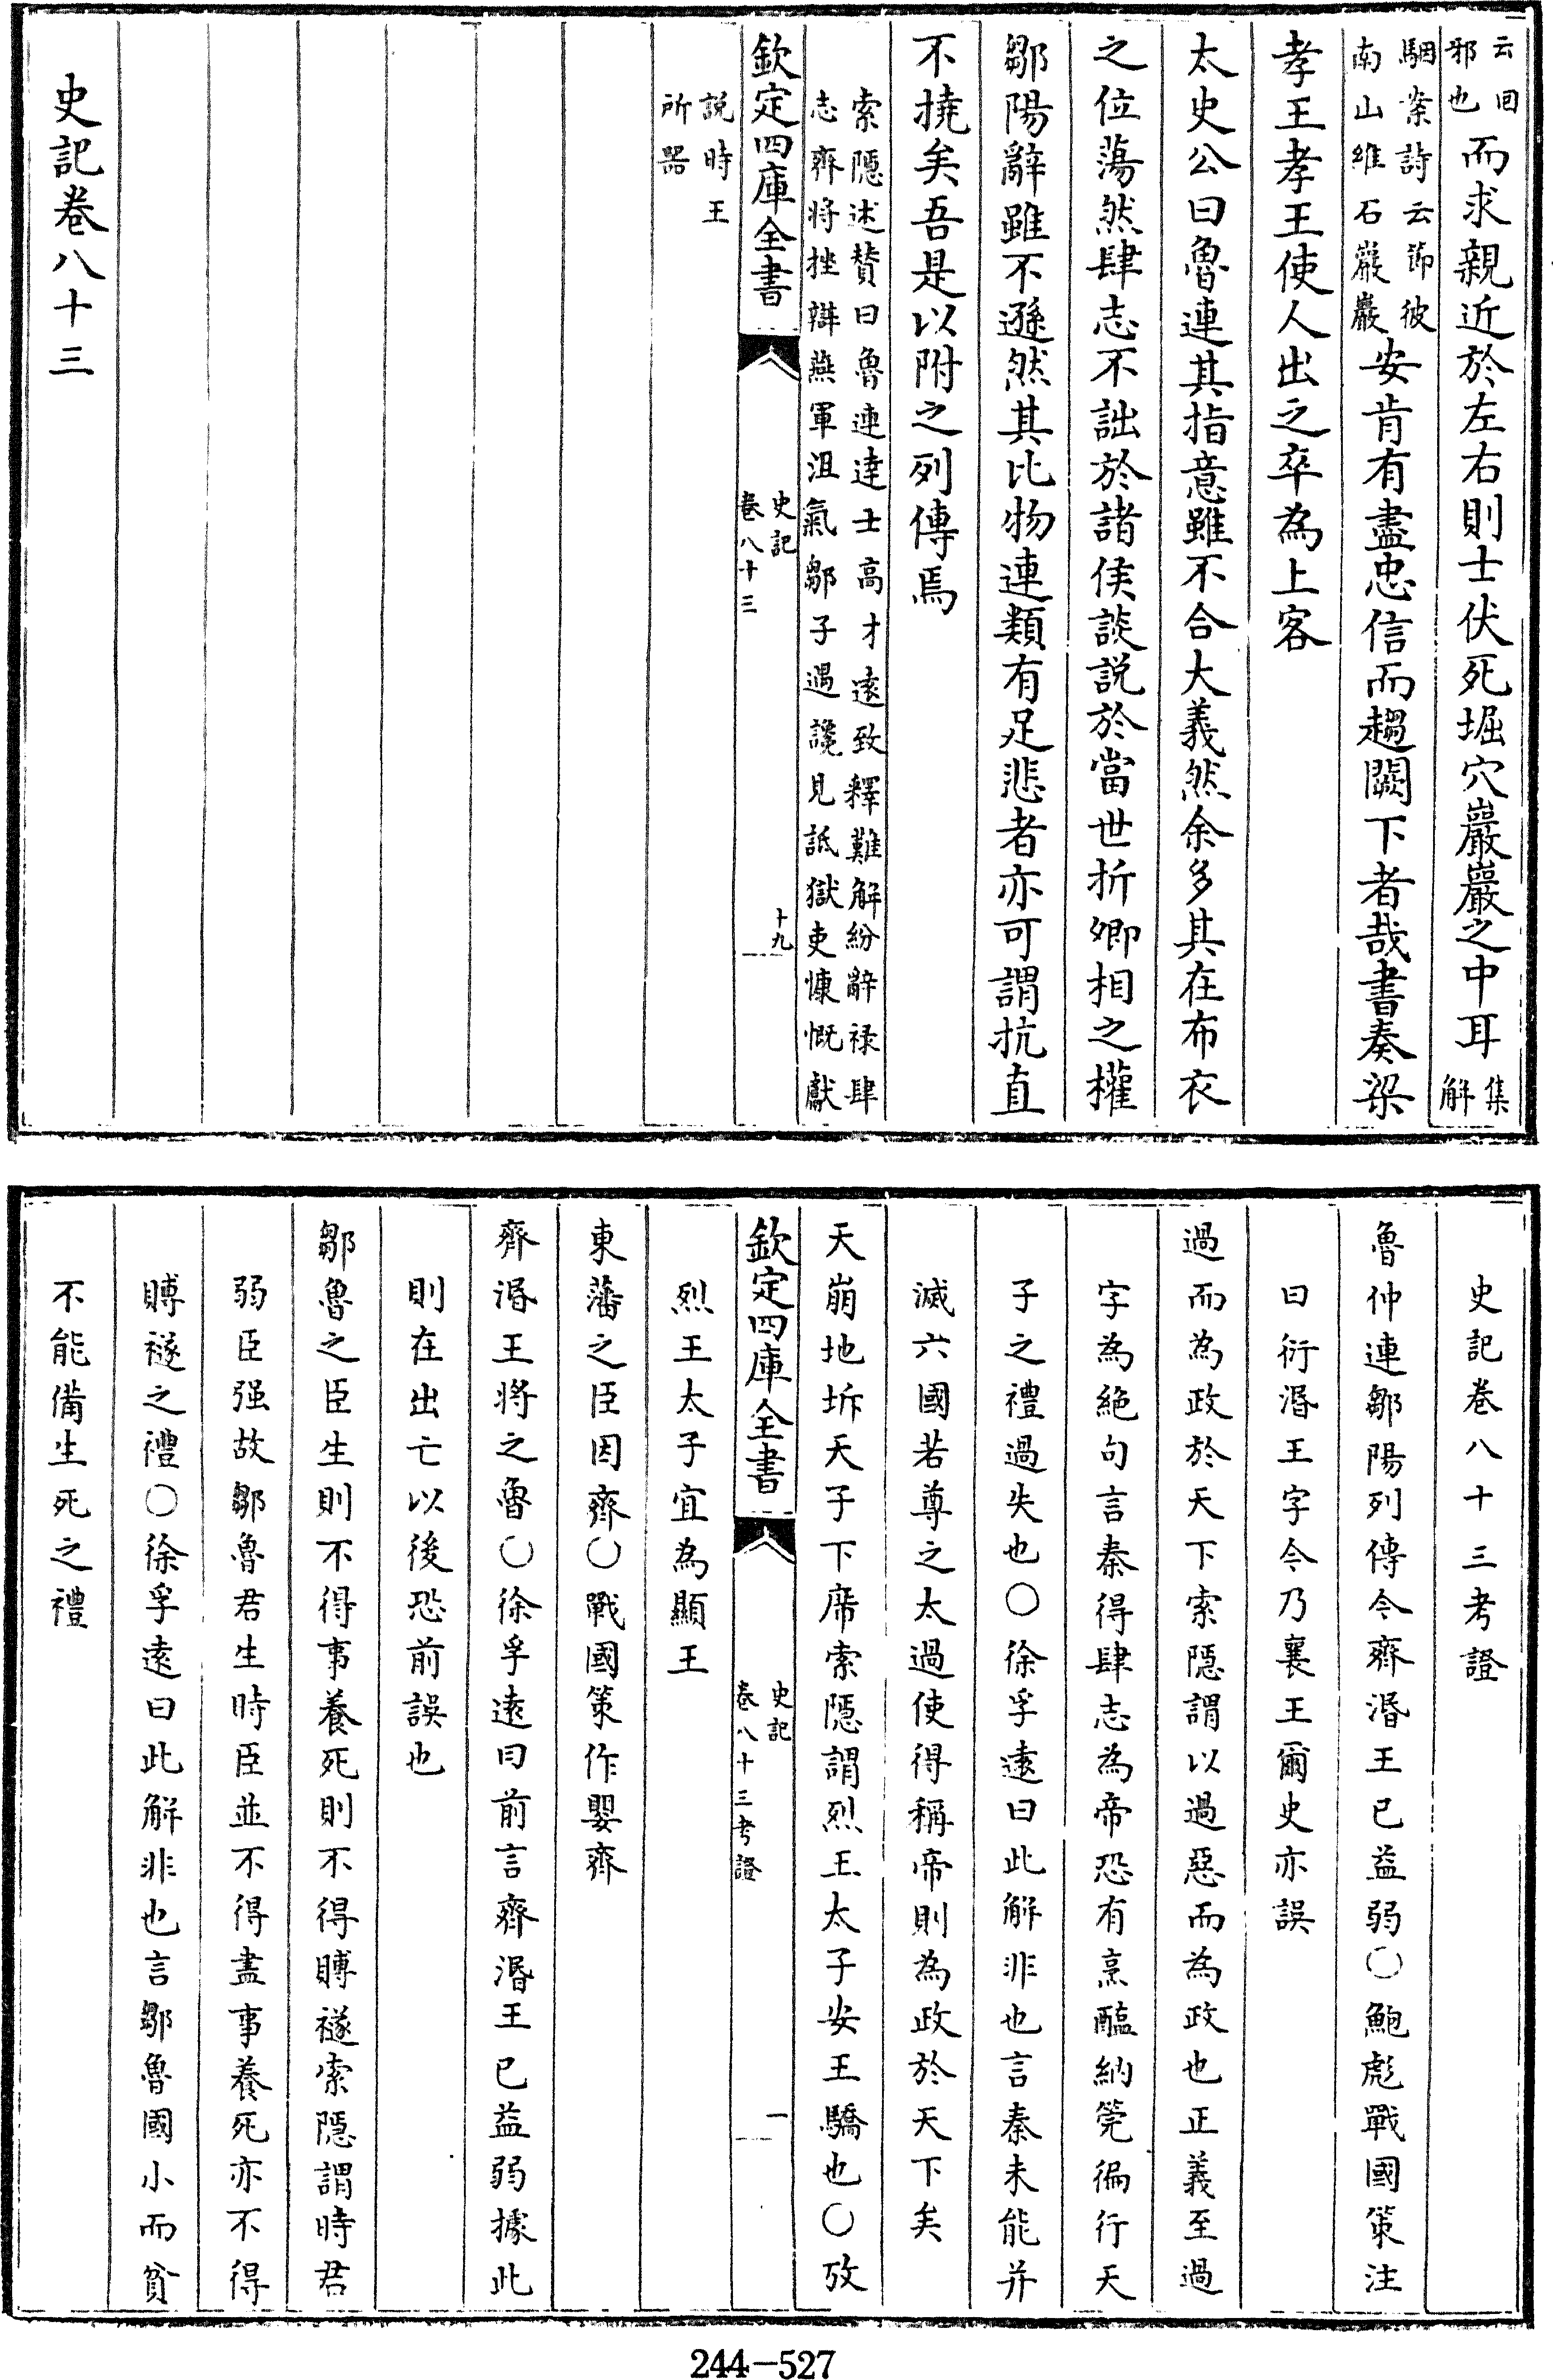 云回邪也而求親近於左右則士伏死堀穴巖巖之中耳集解
駰案詩云節彼南山維石巖巖安肯有盡忠信而趨闕下者哉書奏梁
孝王孝王使人出之卒為上客
太史公曰魯連其指意雖不合大義然余多其在布衣
之位蕩然肆志不詘於諸侯談説於當世折卿相之權
鄒陽辭雖不遜然其比物連類有足悲者亦可謂抗直
不撓矣吾是以附之列傳焉
索隱述贊曰魯連達士高才遠致釋難解紛辭祿肆
志齊將挫辯燕軍沮氣鄒子遇讒見詆獄吏慷慨獻
欽定四庫全書
史記
卷八十三
十九
説時王
所器
史記卷八十三
史記卷八十三考證
魯仲連鄒陽列傳今齊湣王已益弱○鮑彪戰國策注
曰衍湣王字今乃襄王爾史亦誤
過而為政於天下索隱謂以過惡而為政也正義至過
字為絶句言秦得肆志為帝恐有烹醢納筦徧行天
子之禮過失也○徐孚遠曰此解非也言秦未能并
滅六國若尊之太過使得稱帝則為政於天下矣
天崩地坼天子下席索隱謂烈王太子安王驕也○攷
欽定四庫全書
史記
卷八十三考證
一
烈王太子宜為顯王
東藩之臣因齊○戰國策作嬰齊
齊湣王將之魯○徐孚遠曰前言齊湣王已益弱據此
則在出亡以後恐前誤也
鄒魯之臣生則不得事養死則不得賻襚索隱謂時君
弱臣强故鄒魯君生時臣並不得盡事養死亦不得
賻襚之禮○徐孚遠曰此解非也言鄒魯國小而貧
不能備生死之禮
244-527